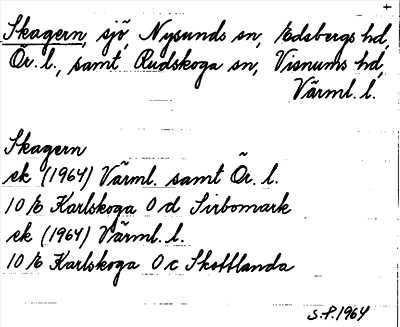 +
Skagern, sjö, Nysunds sn, Edsbergs hd,
Ör. l., samt Rudskoga sn, Visnums hd,
Värml. l.
Skagern
ek (1964) Värml. samt Ör. l.
10 E Karlskoga 0 d Sirbomark
ek (1964) Värml. l.
10 E Karlskoga 0 c Skottlanda
S.P. 1964